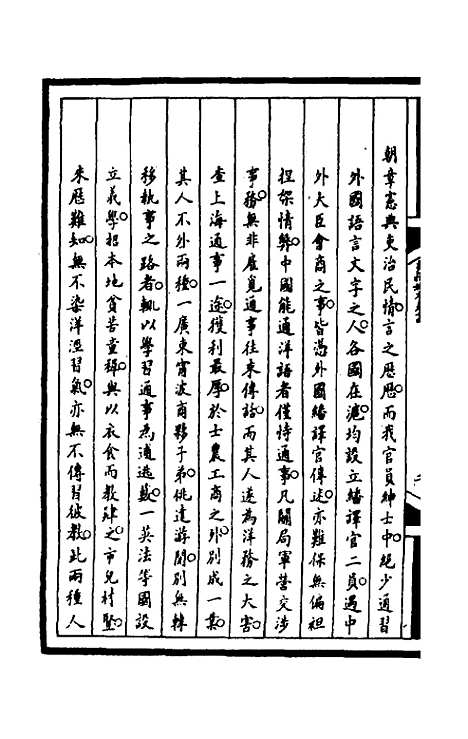 朝章憲典吏治民情言之歷歷而我官員紳士中絕少通習
外國語言文字之人各國在滬均設立繙譯官二員遇中
外大臣會商之事皆憑外國繙譯官傳述亦難保無偏袒
捏架情弊中國能通洋語者僅恃通事凡關局軍營交涉
事務無非雇覓通事往來傳話而其人遂為洋務之大害
查上海通事一途獲利最厚於士農工商之外別成一業
其人不外兩種一廣東寧波商夥子弟佻達游閒別無轉
移執事之路者輒以學習通事為逋逃藪一英法等國設
立義學招本地貧苦童穉與以衣食而教肄之市兒村豎
來歷難知無不染洋涇習氣亦無不傳習彼教此兩種人